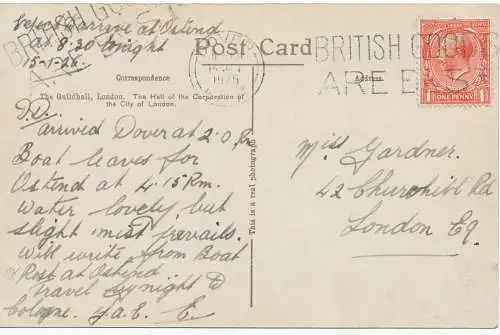 arrive at Ostend
at 8:30 tonight
15-1-26.
Post Card
BRITISH GOODS
ARE BEST
Correspondence
Address
The Guildhall, London. The Hall of the Corporation of
the City of London.
ONE PENNY
This is a real photograph
arrived Dover at 2.0 Pm
Boat leaves for
Ostend at 4.15 Pm.
Water lovely, but
slight mist prevails.
Will write from Boat
Post at Ostend
travel by night to
Cologne. E
Miss Gardner.
42 Churchill Rd
London E9.